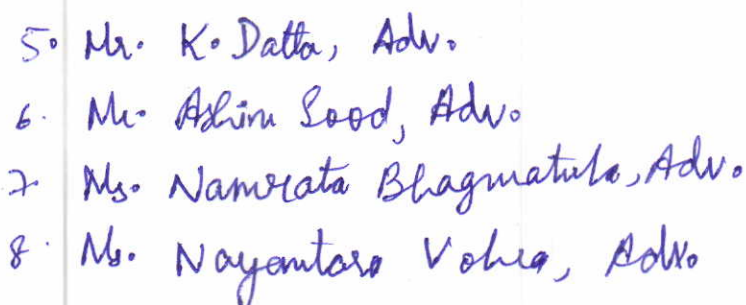 5. Mr. K. Datta, Adv.
6. Mr. Ashim Sood, Adv.
7. Ms. Namrata Bhagwatula, Adv.
8. Ms. Nayantara Vohra, Adv.